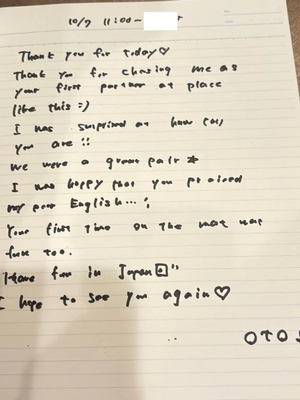 10/7 11:00~
Thank you for today♡
Thank you for chosing me as
your first partner at place
like this :)
I was surprised at how
you are !!
We were a great pair ☆
I was happy that you praised
my poor English...
Your first time on the mat was
fun too.
Have fun in Japan
I hope to see you again♡
OTOS